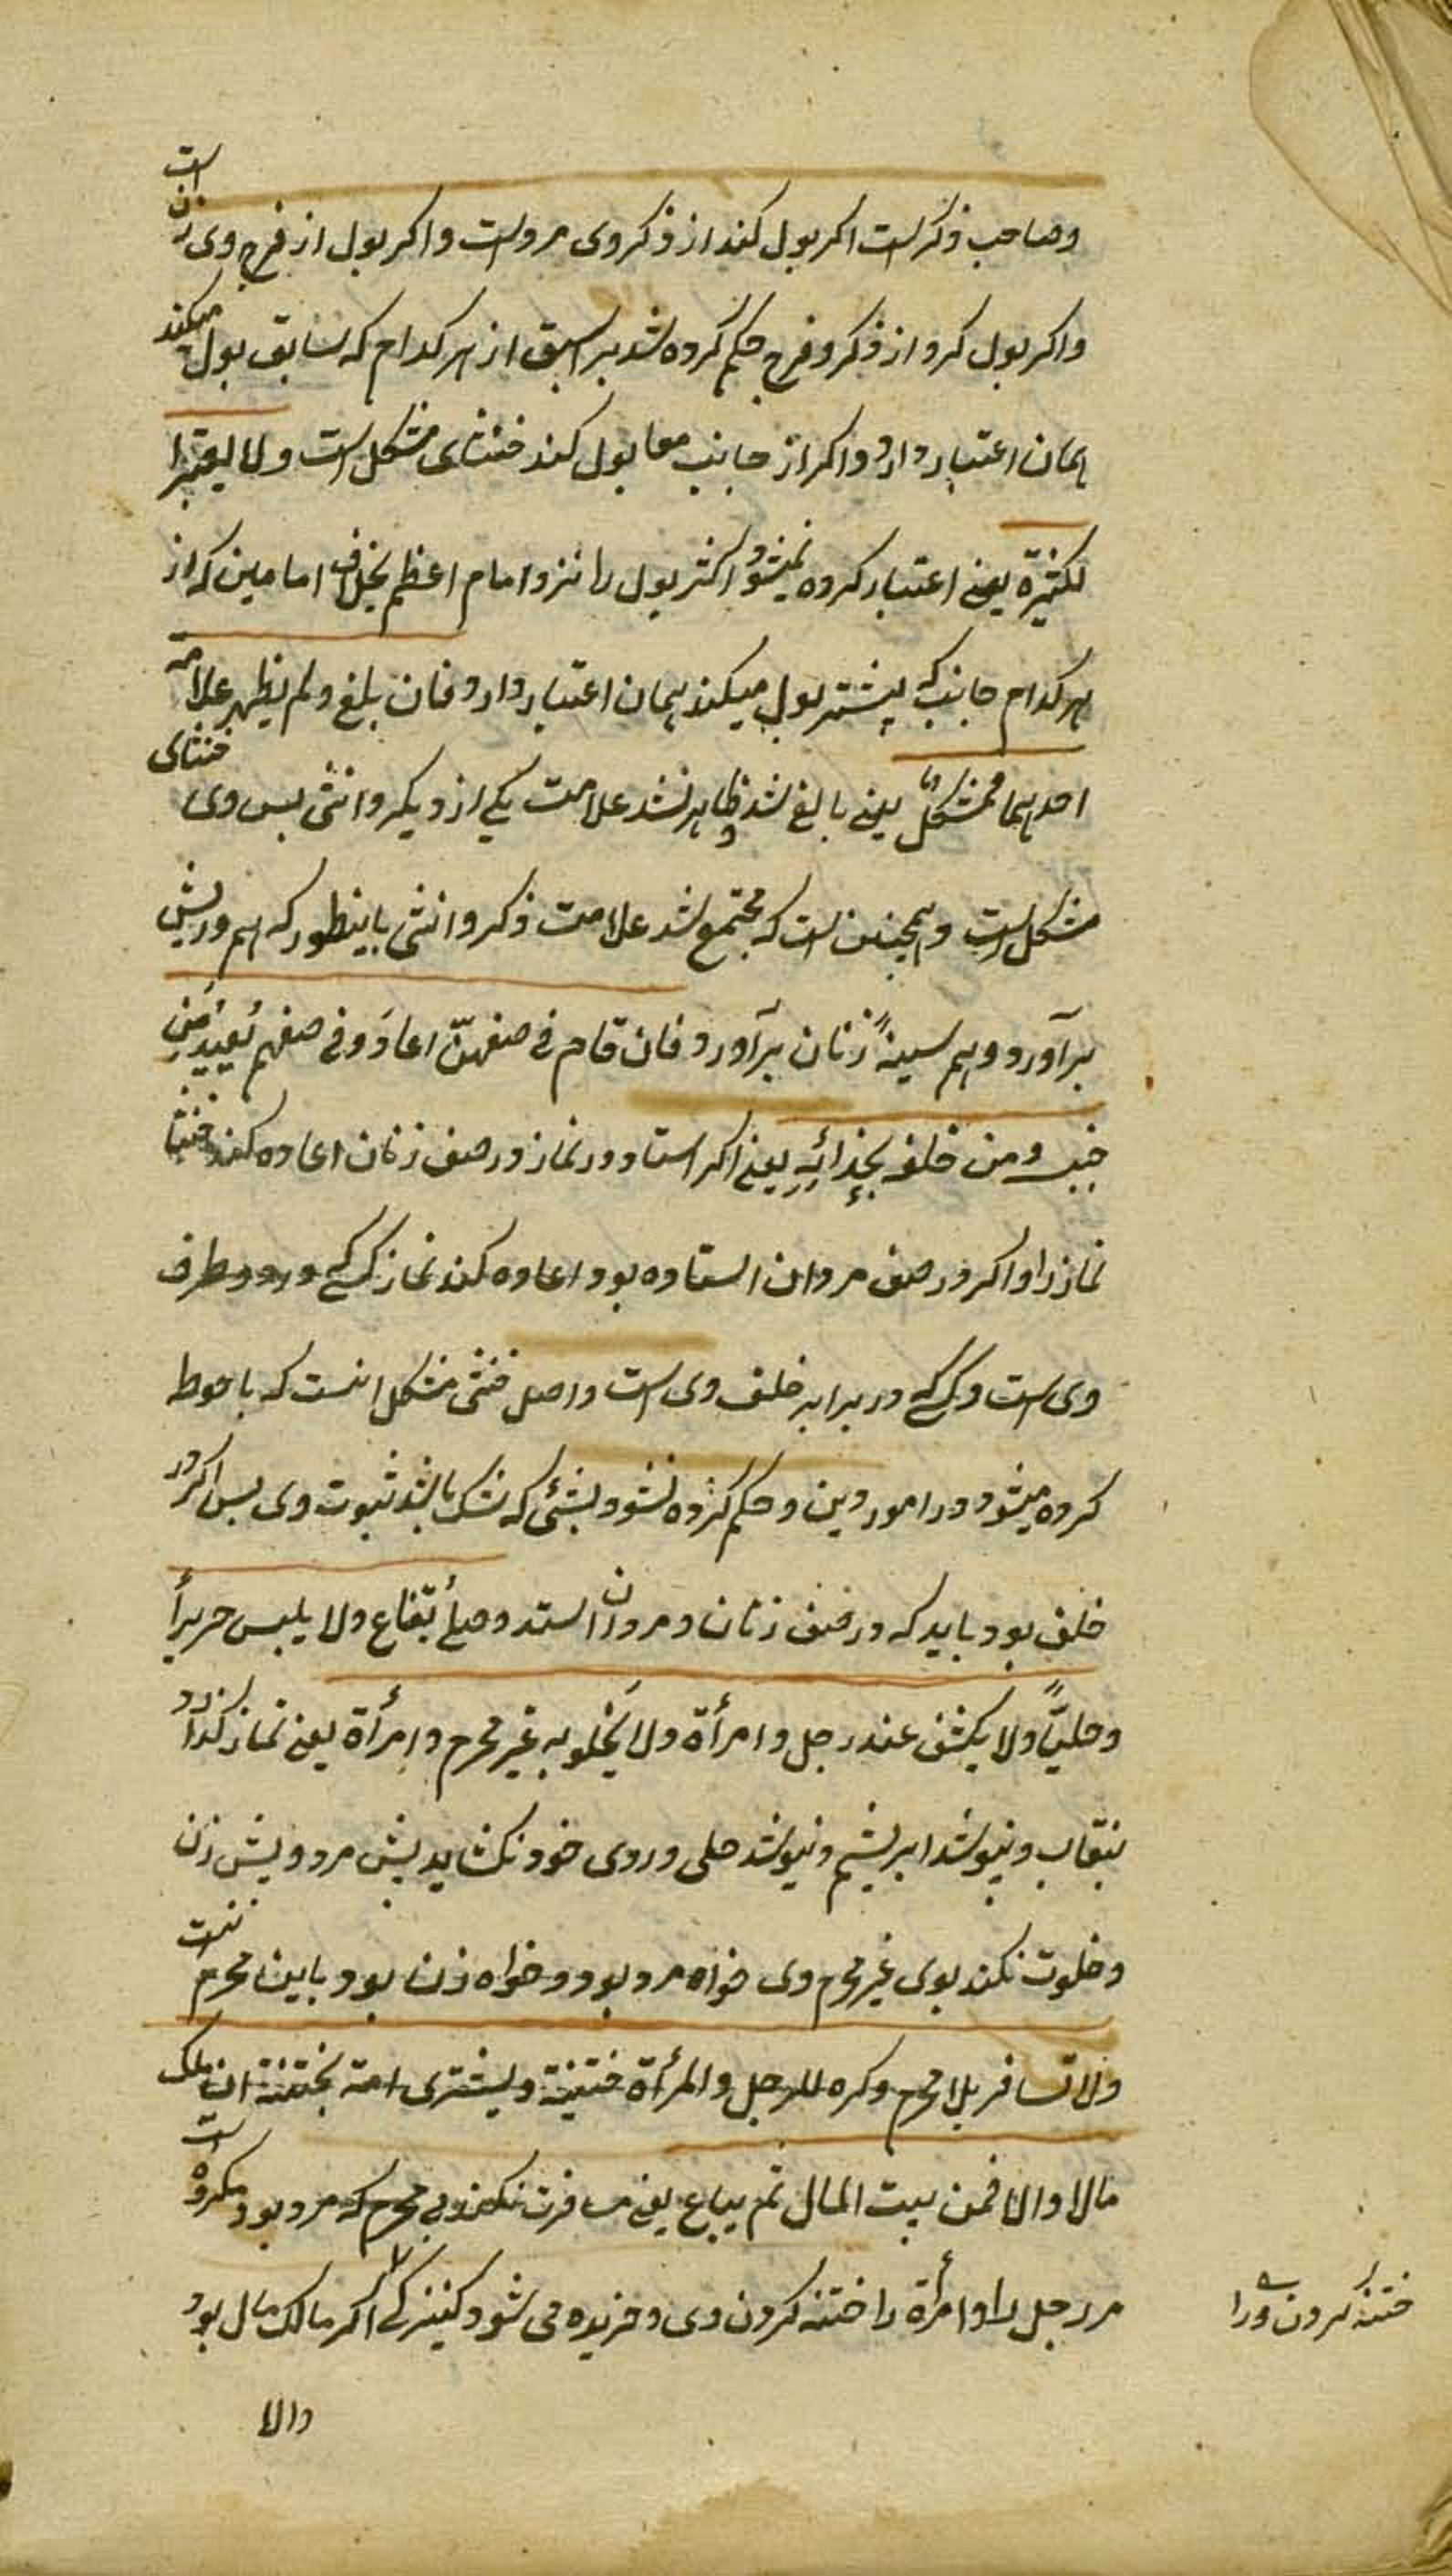 وصاحب ذکر است اکر بول کند از ذکر وی مرد است واکر بول از فرج وی زن است
واکر بول کرد از ذکر وفرج حکم کرده شد بر اسبق از هر کدام که سابق بول میکند
همان اعتبار دارد واکر از جانب معا بول کند خنثای مشکل است ولا یعتبر ا
لکثیرة یعنی اعتبار کرده نمیشود اکثر بول را نزد امام اعظم بخلاف امامین که از
هر کدام جانب که بیشتر بول میکند همان اعتبار دارد فان بلغ ولم یظهر علامة
احدیهما فمشکلٌ یعنی بالغ شد و ظاهر نشد علامت یکی از دیکر وانثی بس وی خنثای
مشکل است وهمچنین است که مجتمع شد علامت ذکر وانثی باینطور که هم در ریش
برآورد وهم سینهٔ زنان برآورد فان قام فی صفهنّ اعادَ وفی صفهم یُعیدُ مَن
جنبیه ومن خلفه بحِذائِهِ یعنی اکر استاد در نماز در صف زنان اعاده کند خنثا
نماز را واکر در صف مردان استاده بود اعاده کند نماز کسی که در دو طرف
وی است وکسی که در برابر خلف وی است واصل خنثی مشکل انست که باحوط
کرده میشود در امور دین وحکم کرده نشود بشئی که شک باشد ثبوت وی بس اکر در
خلف بود باید که در صف زنان ومردان استد وصلّی بقناع ولا یلبس حریراً
وحلیّاً ولا یکشف عند رجل وامرأة ولا یَخلو به غیر محرم وامرأة یعنی نماز کذارد
بنقاب ونپوشد ابریشم ونپوشد حلی وروی خود نکشاید پیش مرد وپیش زن
وخلوت نکند بوی غیر محرم وی خواه مرد بود وخواه زن بود باین محرم نیست
ولا تسافر بلا محرم وکره للرجل والمرأة ختنه ویشتری امة تختنه ان ملک
مالا والا فمن بیت المال ثم یباع یعنی مسافرت نکند بی محرم که مرد بود ومکروه است
مر رجل را وامرأة را ختنه کردن وی وخریده می شود کنیزکی اکر مالک مال بود
ختنه کردن ورا
والا